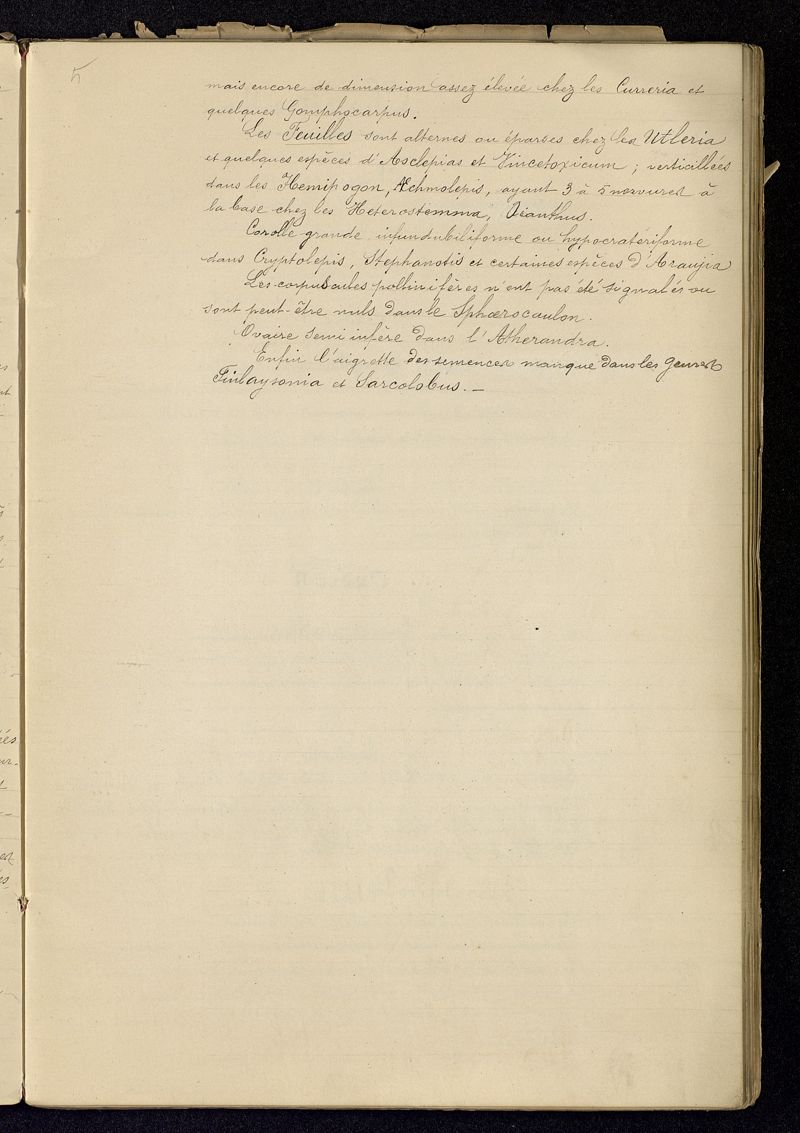 5
mais encore de dimension assez élevée chez les Curreria et
quelques Gomphocarpus.
Les Feuilles sont alternes ou éparses chez les Utleria
et quelques espèces d'Asclepias et Vincetoxicum ; verticillées
dans les Hemipogon, Æchmolepis, ayant 3 à 5 nervures à
la base chez les Heterostemma, Oianthus.
Corolle grande infundubiliforme ou hypocratériforme
dans Cryptolepis, Stephanotis et certaines espèces d'Araujia
Les corpuscules pollinifères n'ont pas été signalés ou
sont peut-être nuls dans le Sphærscaulon.
Ovaire semi infère dans l'Atherandra.
Enfin l'aigrette des semences manque dans les genres
Finlaysonia et Sarcolobus. —